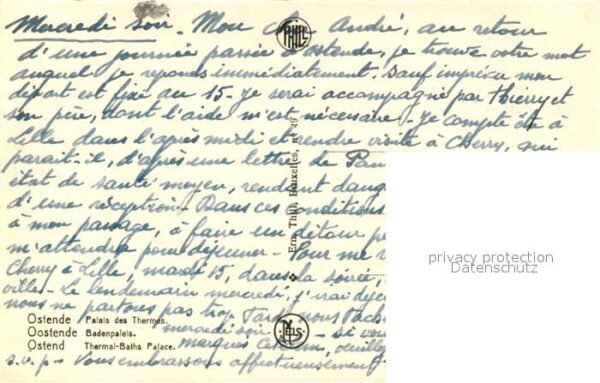 Mercredi soir. Mon cher André, au retour
d'une journée passée à Ostende, je trouve votre mot
auquel je reponds immédiatement. Sauf imprévu mon
départ est fixé au 15. Je serai accompagné par Thierry et
son père, dont l'aide m'est nécessaire. Je compte être à
Lille dans l'après midi et rendre visite à Cherry, qui
parait-il, d'après une lettre de
état de santé moyen, rendant
d'une réception. Dans ces conditions
à mon passage, à faire un détour
m'attendre pour déjeuner. Pour me
Cherry à Lille, mardi 15, dans la soirée,
ville. Le lendemain mercredi, j'irai
nous ne partons pas trop tard, nous
mercredi soir - si vous
s.v.p. Vous embrassons affectueusement
Ostende Palais des Thermes.
Oostende Badenpaleis.
Ostend Thermal-Baths Palace.
PHILS
Ern. Thill, Bruxelles, n° 49
NELS
privacy protection
Datenschutz